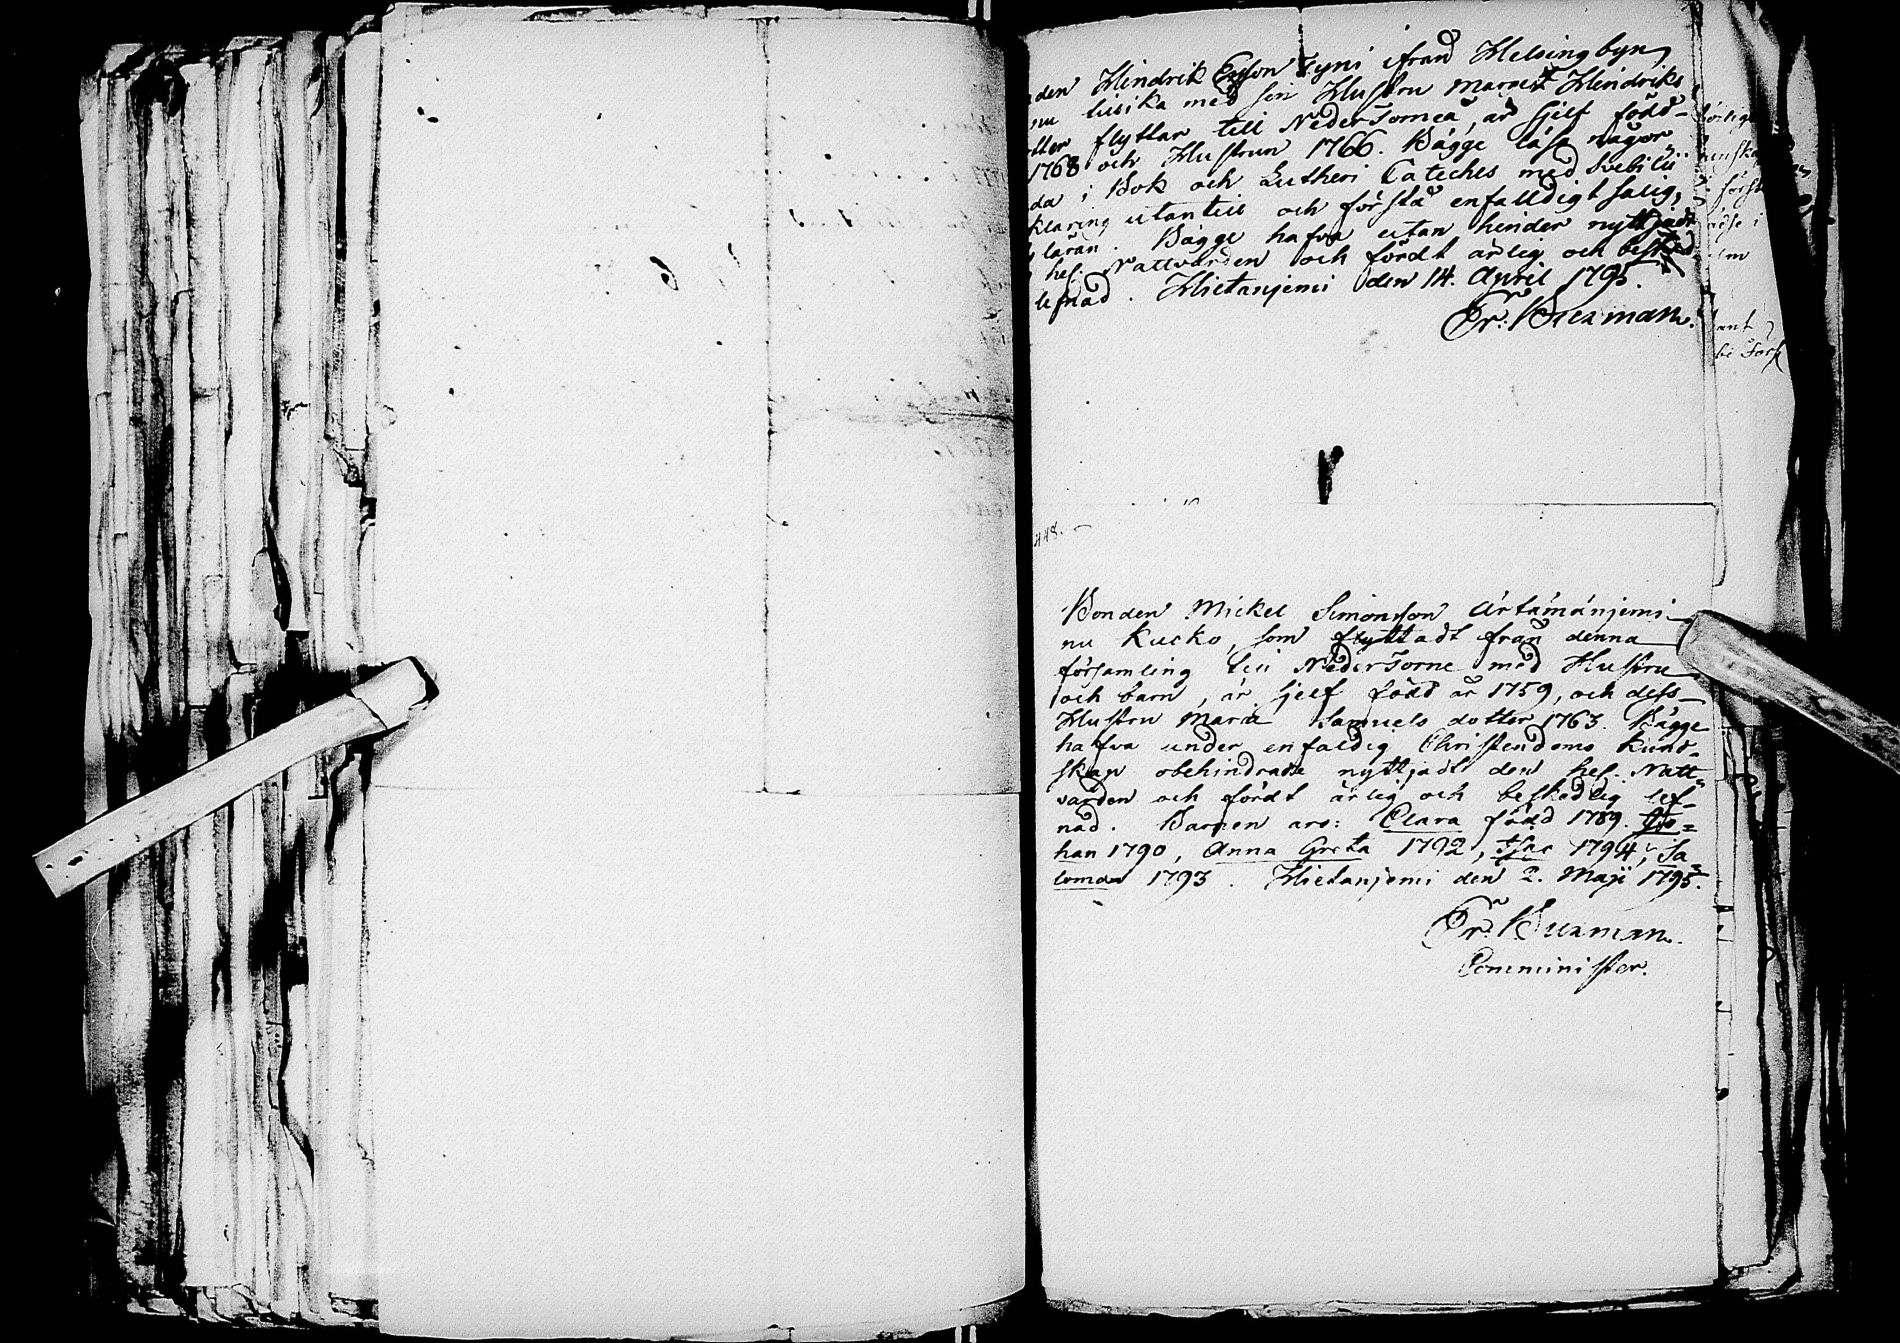 den Hindrik Ersson Tyni ifrån Helsingbyn
nu luika med sin Hustru Margret Hindriks
tter flyttar till NederTorneå, är sjelf född
1768 och Hustrun 1766. Bägge läsa någor-
da i Bok och Lutheri Cateches med Svebilii
klaring utantill och förstå enfalldigt salig-
läran. Bägge hafva utan hinder nyttjadt
hel. Nattvarden och fördt ärlig och beskedl
lefnad. Hietanjemi den 14. April 1795.
Er. Burman.
448.
Bonden Mickel Simonsson Ärtämänjemi
nu Kucko, som flyttadt från denna
församling till NederTorne med Hustru
och barn, är sjelf född år 1759, och dess
Hustru Maria Samuels dotter 1763. Bägge
hafva under enfaldig Christendoms kund-
skap obehindrade nyttjadt den hel. Natt-
varden och fördt ärlig och beskedlig lef-
nad. Barnen äro: Clara född 1789. Jo=
han 1790, Anna Greta 1792, Isac 1794, Sa-
lomon 1793. Hietanjemi den 2. Maji 1795.
Er. Burman.
Comminister.